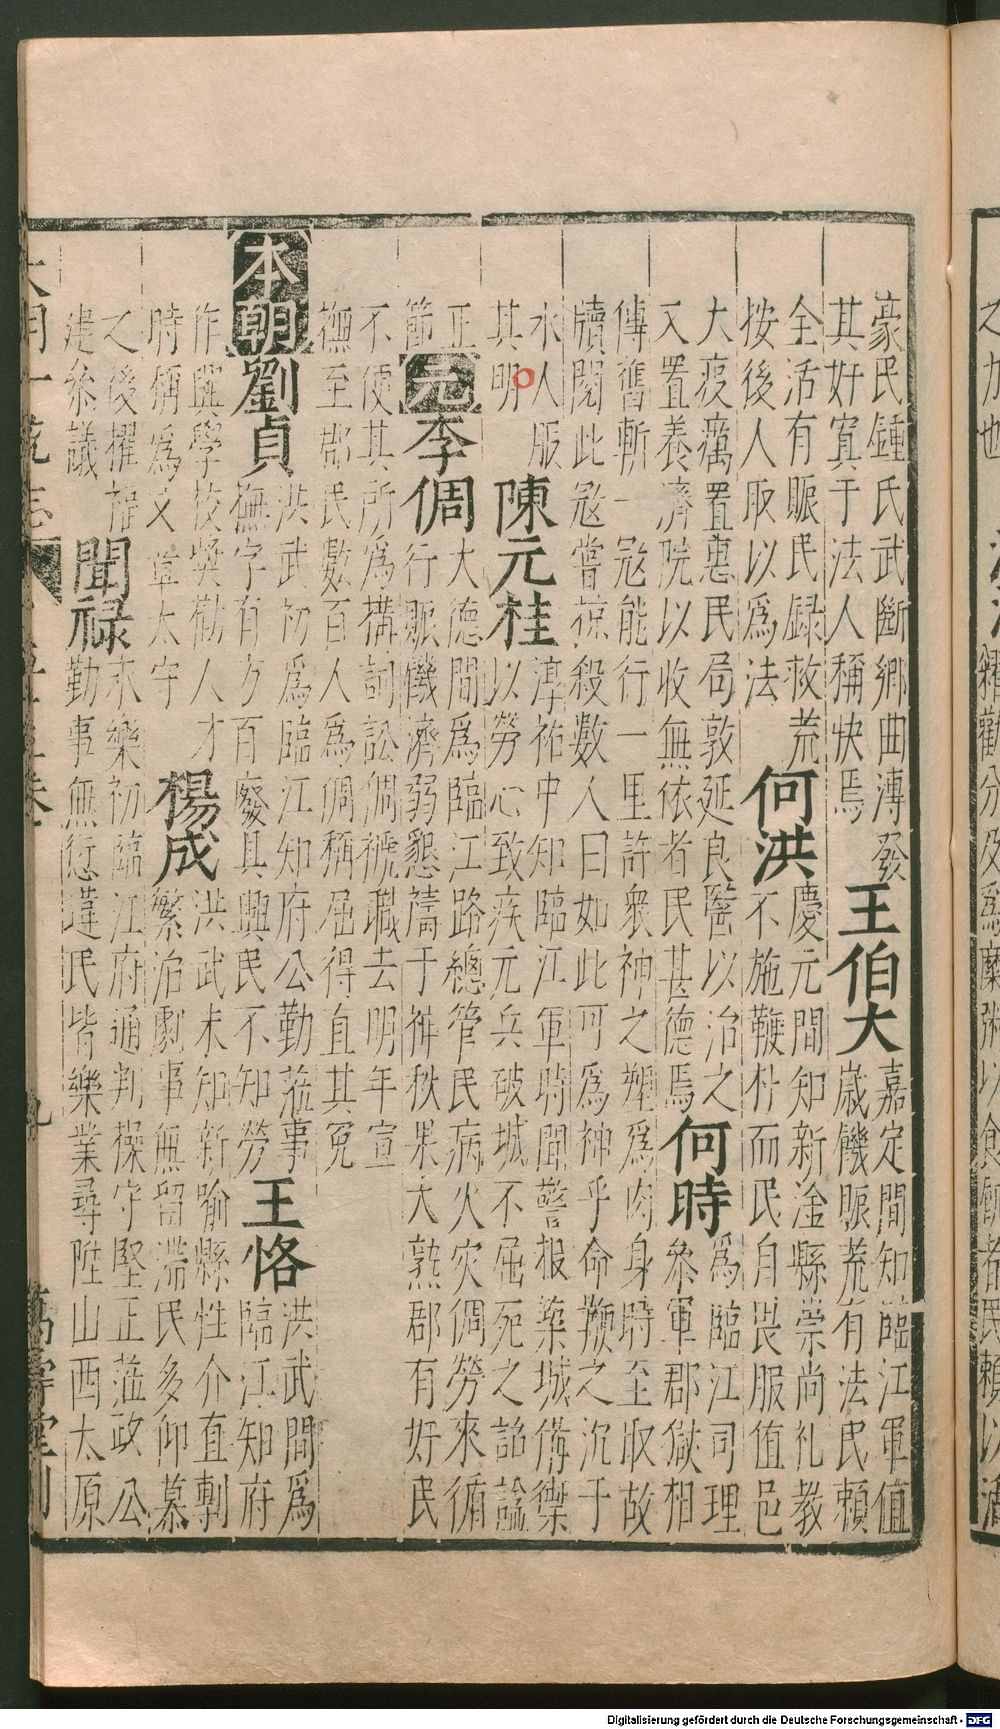 豪民鍾氏武斷鄉曲溥發
其好寘于法人稱快焉
王伯大
嘉定間知臨江軍值
歲饑賑荒有法民賴
全活有賑民録救荒
按後人取以爲法
何洪
慶元間知新淦縣崇尚礼教
不施鞭朴而民自畏服值邑
大疫癘置惠民局敦延良醫以治之
又置養濟院以收無依者民甚德焉
何時
爲臨江司理
叅軍郡獄相
傳舊斬一冦能行一里許衆神之塑爲肉身時至取故
牘閱此冦嘗掠殺數人曰如此可爲神乎命鞭之沉于
水人服
其明
陳元桂
淳祐中知臨江軍時聞警报築城俻禦
以勞心致疾元兵破城不屈死之詔諡
正
節
元
李倜
大德間爲臨江路總管民病火灾倜勞来循
行賑饑濟弱懇禱于神秋果大熟郡有好民
不使其所爲搆詞訟倜褫職去明年宣
撫至郡民數百人爲倜稱屈得直其冤
本朝
劉貞
洪武初爲臨江知府公勤蒞事
撫字有方百廢具興民不知勞
王恪
洪武間爲
臨江知府
作興學校奬勸人才
時稱爲文章太守
楊成
洪武末知新喻縣性介直剸
繁治劇事無留滯民多仰慕
之後擢福
建叅議
聞禄
永樂初臨江府通判操守堅正蒞政公
勤事無愆違民皆樂業尋陞山西太原
大明一統志
五十五卷
九
之力也
糴勸分及爲糜粥以食餓者民賴以活
Digitalisierung gefördert durch die Deutsche Forschungsgemeinschaft - DFG